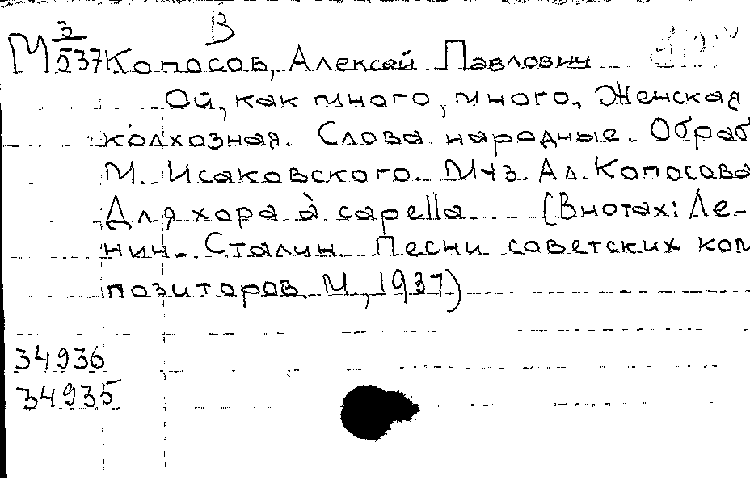 В
М 3/537 Копосов, Алексей Павлович
Ой, как много, много, Женская
колхозная. Слова народные. Обраб
М. Исаковского. Муз. Ал. Копосова
Для хора à capella (В нотах: Ле-
нин. Сталин. Песни советских ком
позиторов М, 1937)
34936
34935